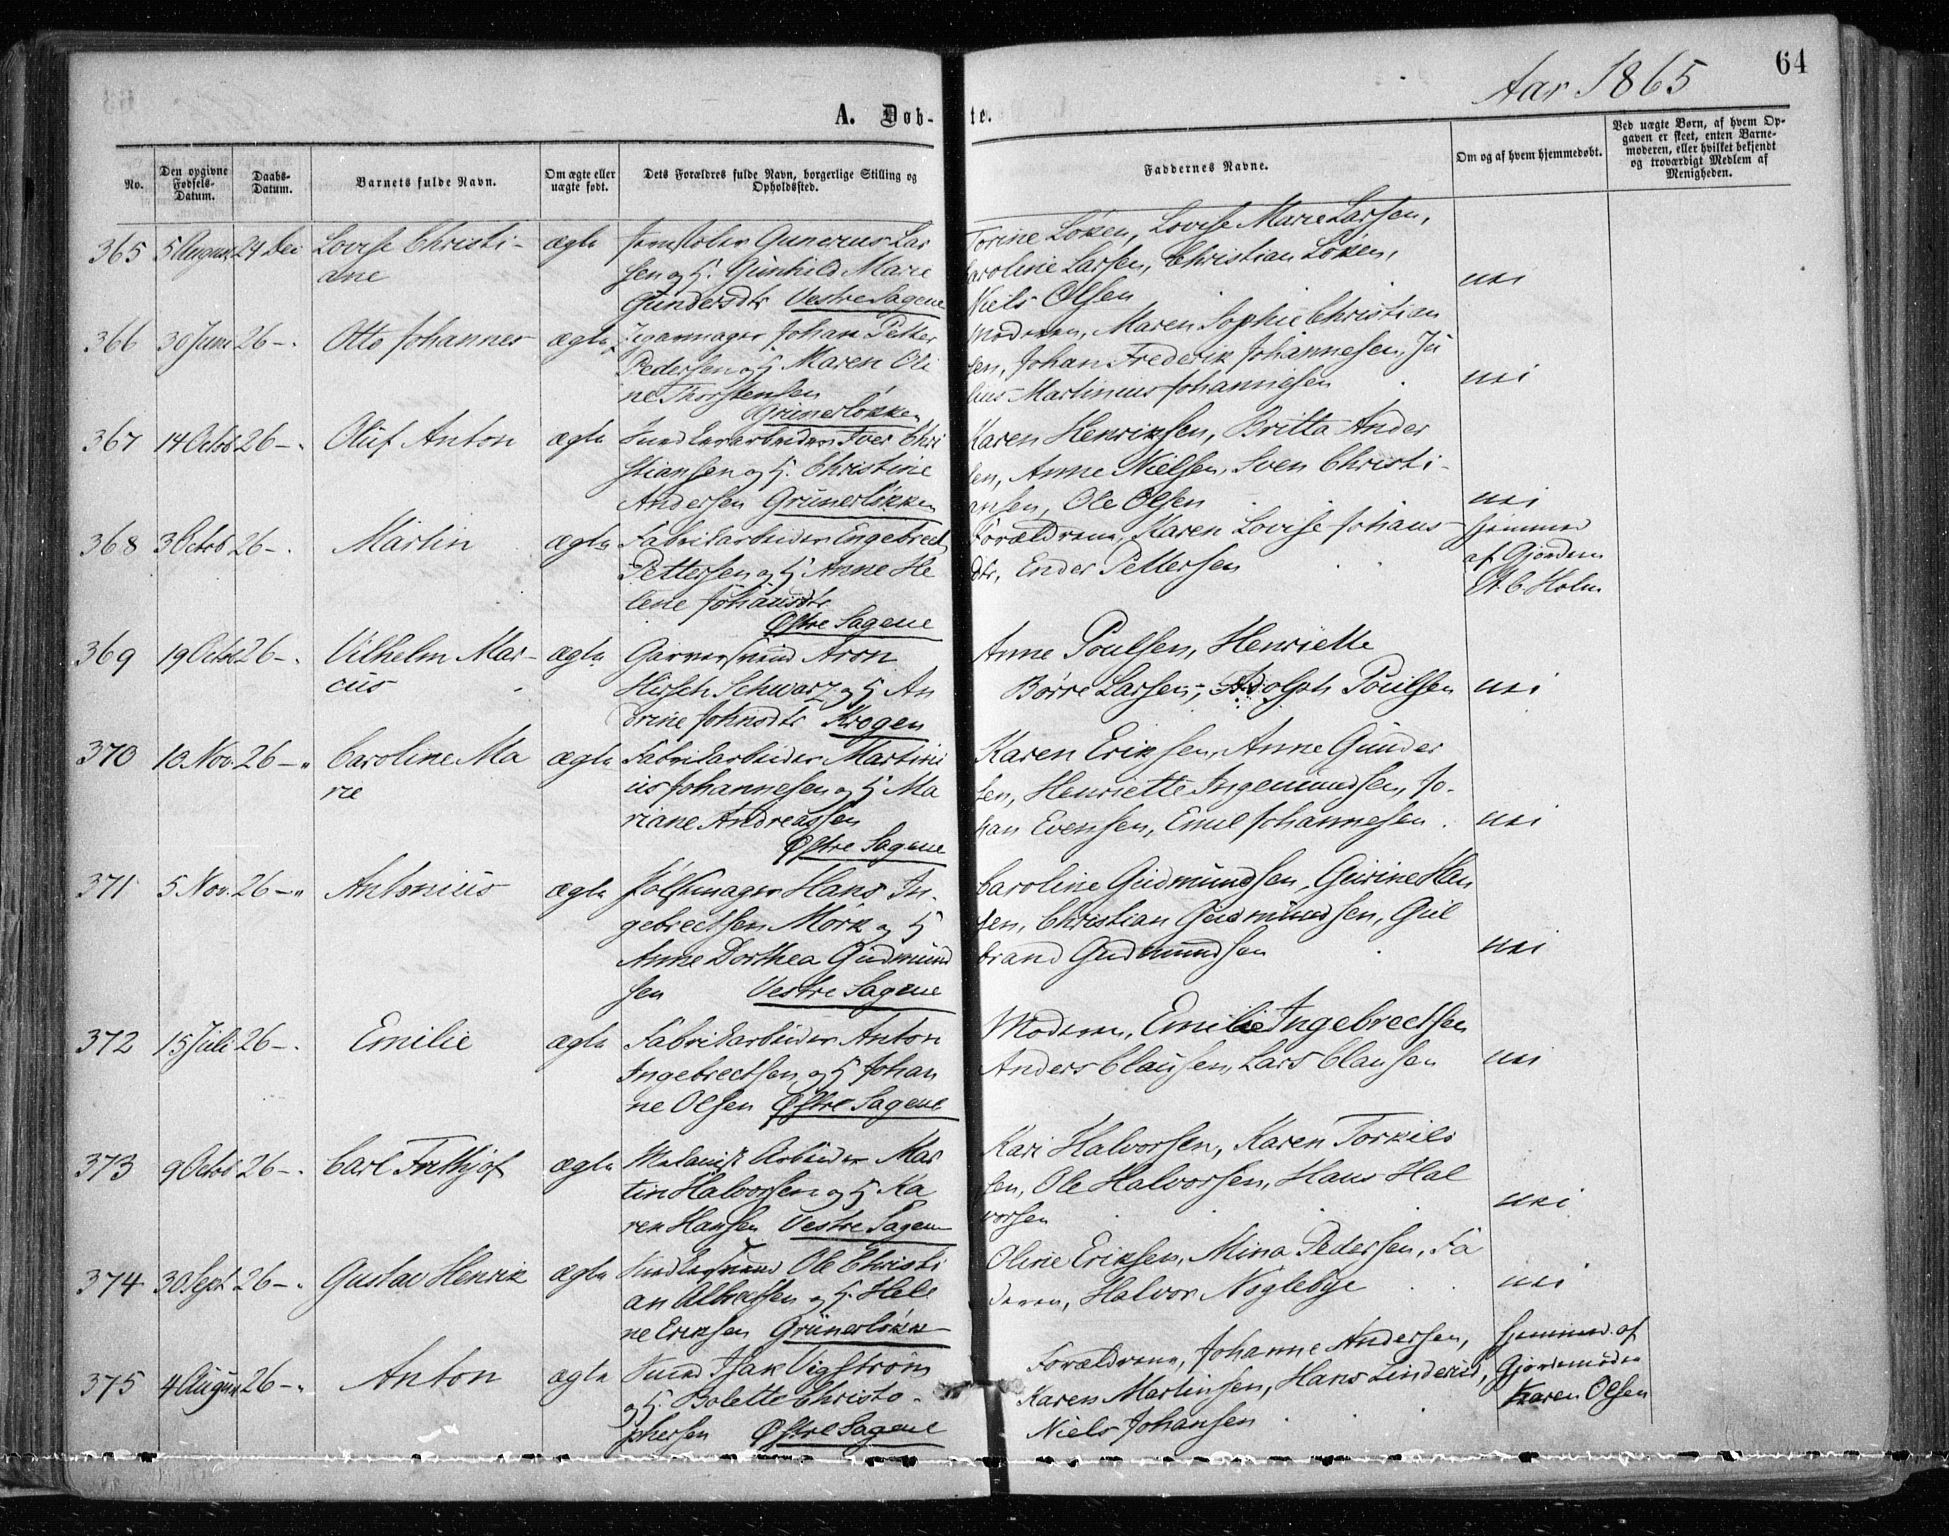 Aar 1865
64
A. Døb-
te.
No.
Den opgivne Fødsels-Datum.
Daabs-Datum.
Barnets fulde Navn.
Om ægte eller uægte født.
Dets Forældres fulde Navn, borgerlige Stilling og Opholdssted.
Faddernes Navne.
Om og af hvem hjemmedøbt.
Ved uægte Børn, af hvem Op-
gaven er skeet, enten Barne-
moderen, eller hvilket bekjendt
og troværdigt Medlem af
Menigheden.
365 5 August 24 Dec Lovise Christi- ægte Jernstøber Gunerus Lar
ane
sen og H. Gunhild Marie
Gundersdtr Vestre Sagene
Torine Löken, Lovise Marie Larsen,
Caroline Larsen, Christian Löken,
Niels Olsen
nei
366 30 Juni 26 -. Otto Johannes ægte Johan Petter
Pedersen og H Maren Oli
ne Thorstensen
Grünerløkken
Moderen, Maren Sophie Christian
sen, Johan Frederik Johannesen, Ju
lius Martinus Johannesen
nei
367 14 Octob 26 -. Oluf Anton ægte Snedkerarbeider Iver Chri
stiansen og H. Christine
Andersen Grünerløkken
Karen Henriksen, Britta Ander
sen, Anne Nielsen, Sven Christi-
ansen, Ole Olsen
nei
368 3 Octob 26 -. Martin ægte Fabrikarbeider Engebret
Pettersen og H Anne He
lene Johansdtr
Østre Sagene
Forældrene, Maren Lovise Johans-
dtr, Ender Pettersen
hjemmed
af Gjordem
A. C. Holm
369 19 Octob 26 -. Vilhelm Mar- ægte Garversvend Aron
cus
Hirsch Schwarz og H An
drine Johnsdtr Krogen
Anne Poulsen, Henriette
Börre Larsen, Adolph Poulsen
nei
370 10 Nov. 26 -" Caroline Ma ægte Fabrikarbeider Martini
rie
us Johannesen og H Ma
riane Andreassen
Østre Sagene
Karen Eriksen, Anne Gunder
sen, Henriette Ingemundsen, Jo-
han Evensen, Emil Johannesen.
nei
371 5 Nov. 26 -" Antonius ægte Pølsemager Hans In-
gebrectsen Mörk og H
Anne Dorthea Gudmund
sen Vestre Sagene
Caroline Gudmundsen, Gurine Han
sen, Christian Gudmundsen, Gul
brand Gudmundsen
nei
372 15 Juli 26 -. Emilie ægte Fabrikarbeider Anton
Ingebrectsen og H Johan
ne Olsen Østre Sagene
Moderen, Emilie Ingebrectsen
Anders Clausen, Lars Clausen
nei
373 9 Octob 26 -. Carl Frithjof ægte Arbeider Mar
tin Halvorsen og H Ka
ren Hansen Vestre Sagene
Kari Halvorsen, Karen Torkils
sen, Ole Halvorsen, Hans Hal
vorsen
nei
374 30 Sept 26 -. Gustav Henrik ægte Snedkersvend Ole Christi
an Albretsen og H. Hele
ne Eriksen Grünerløkk
Oline Eriksen, Mina Pedersen, Fa
deren, Halvor Nöglebye
nei
375 4 August 26 -" Anton ægte Svend Isak Vigström
og H. Bolette Christo-
phersen Østre Sagene
Forældrene, Johanne Andersen,
Karen Martinsen, Hans Linderud,
Niels Johansen
hjemmed. af
Gjordemoder
Karen Olsen